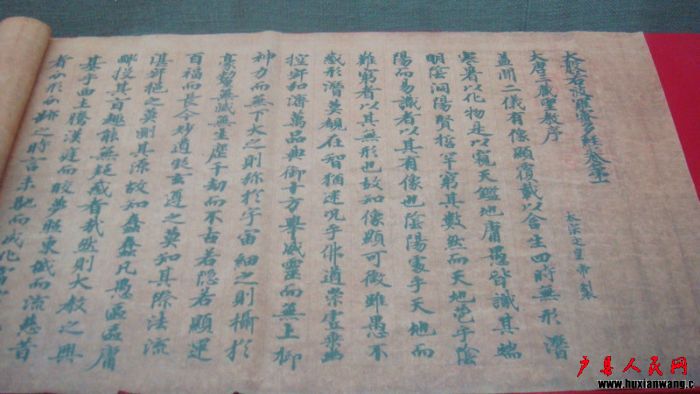 大般若波羅蜜多經卷第一
大唐三藏聖教序
太宗文皇帝製
蓋聞二儀有像顯復載以含生四時無形潛
寒暑以化物是以窺天鑑地庸愚皆識其端
明陰洞陽賢哲罕窮其數然而天地苞乎陰
陽而易識者以其有像也陰陽處乎天地而
難窮者以其無形也故知像顯可徵雖愚不
惑形潛莫覩在智猶迷況乎佛道崇虛乘幽
控寂弘濟萬品典御十方舉威靈而無上抑
神力而無下大之則弥於宇宙細之則攝於
毫釐無滅無生歷千劫而不古若隱若顯運
百福而長今妙道凝玄遵之莫知其際法流
湛寂挹之莫測其源故知蠢蠢凡愚區區庸
鄙投其旨趣能無疑惑者哉然則大教之興
基乎西土騰漢廷而皎夢照東域而流慈昔
者分形分跡之時言未馳而成化
户县人民网
www.huxianwang.c